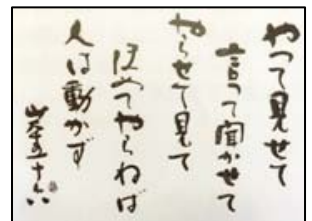 やつて見せて
言つて聞かせて
やらせて見て
ほめてやらねば
人は動かず
山本五十六